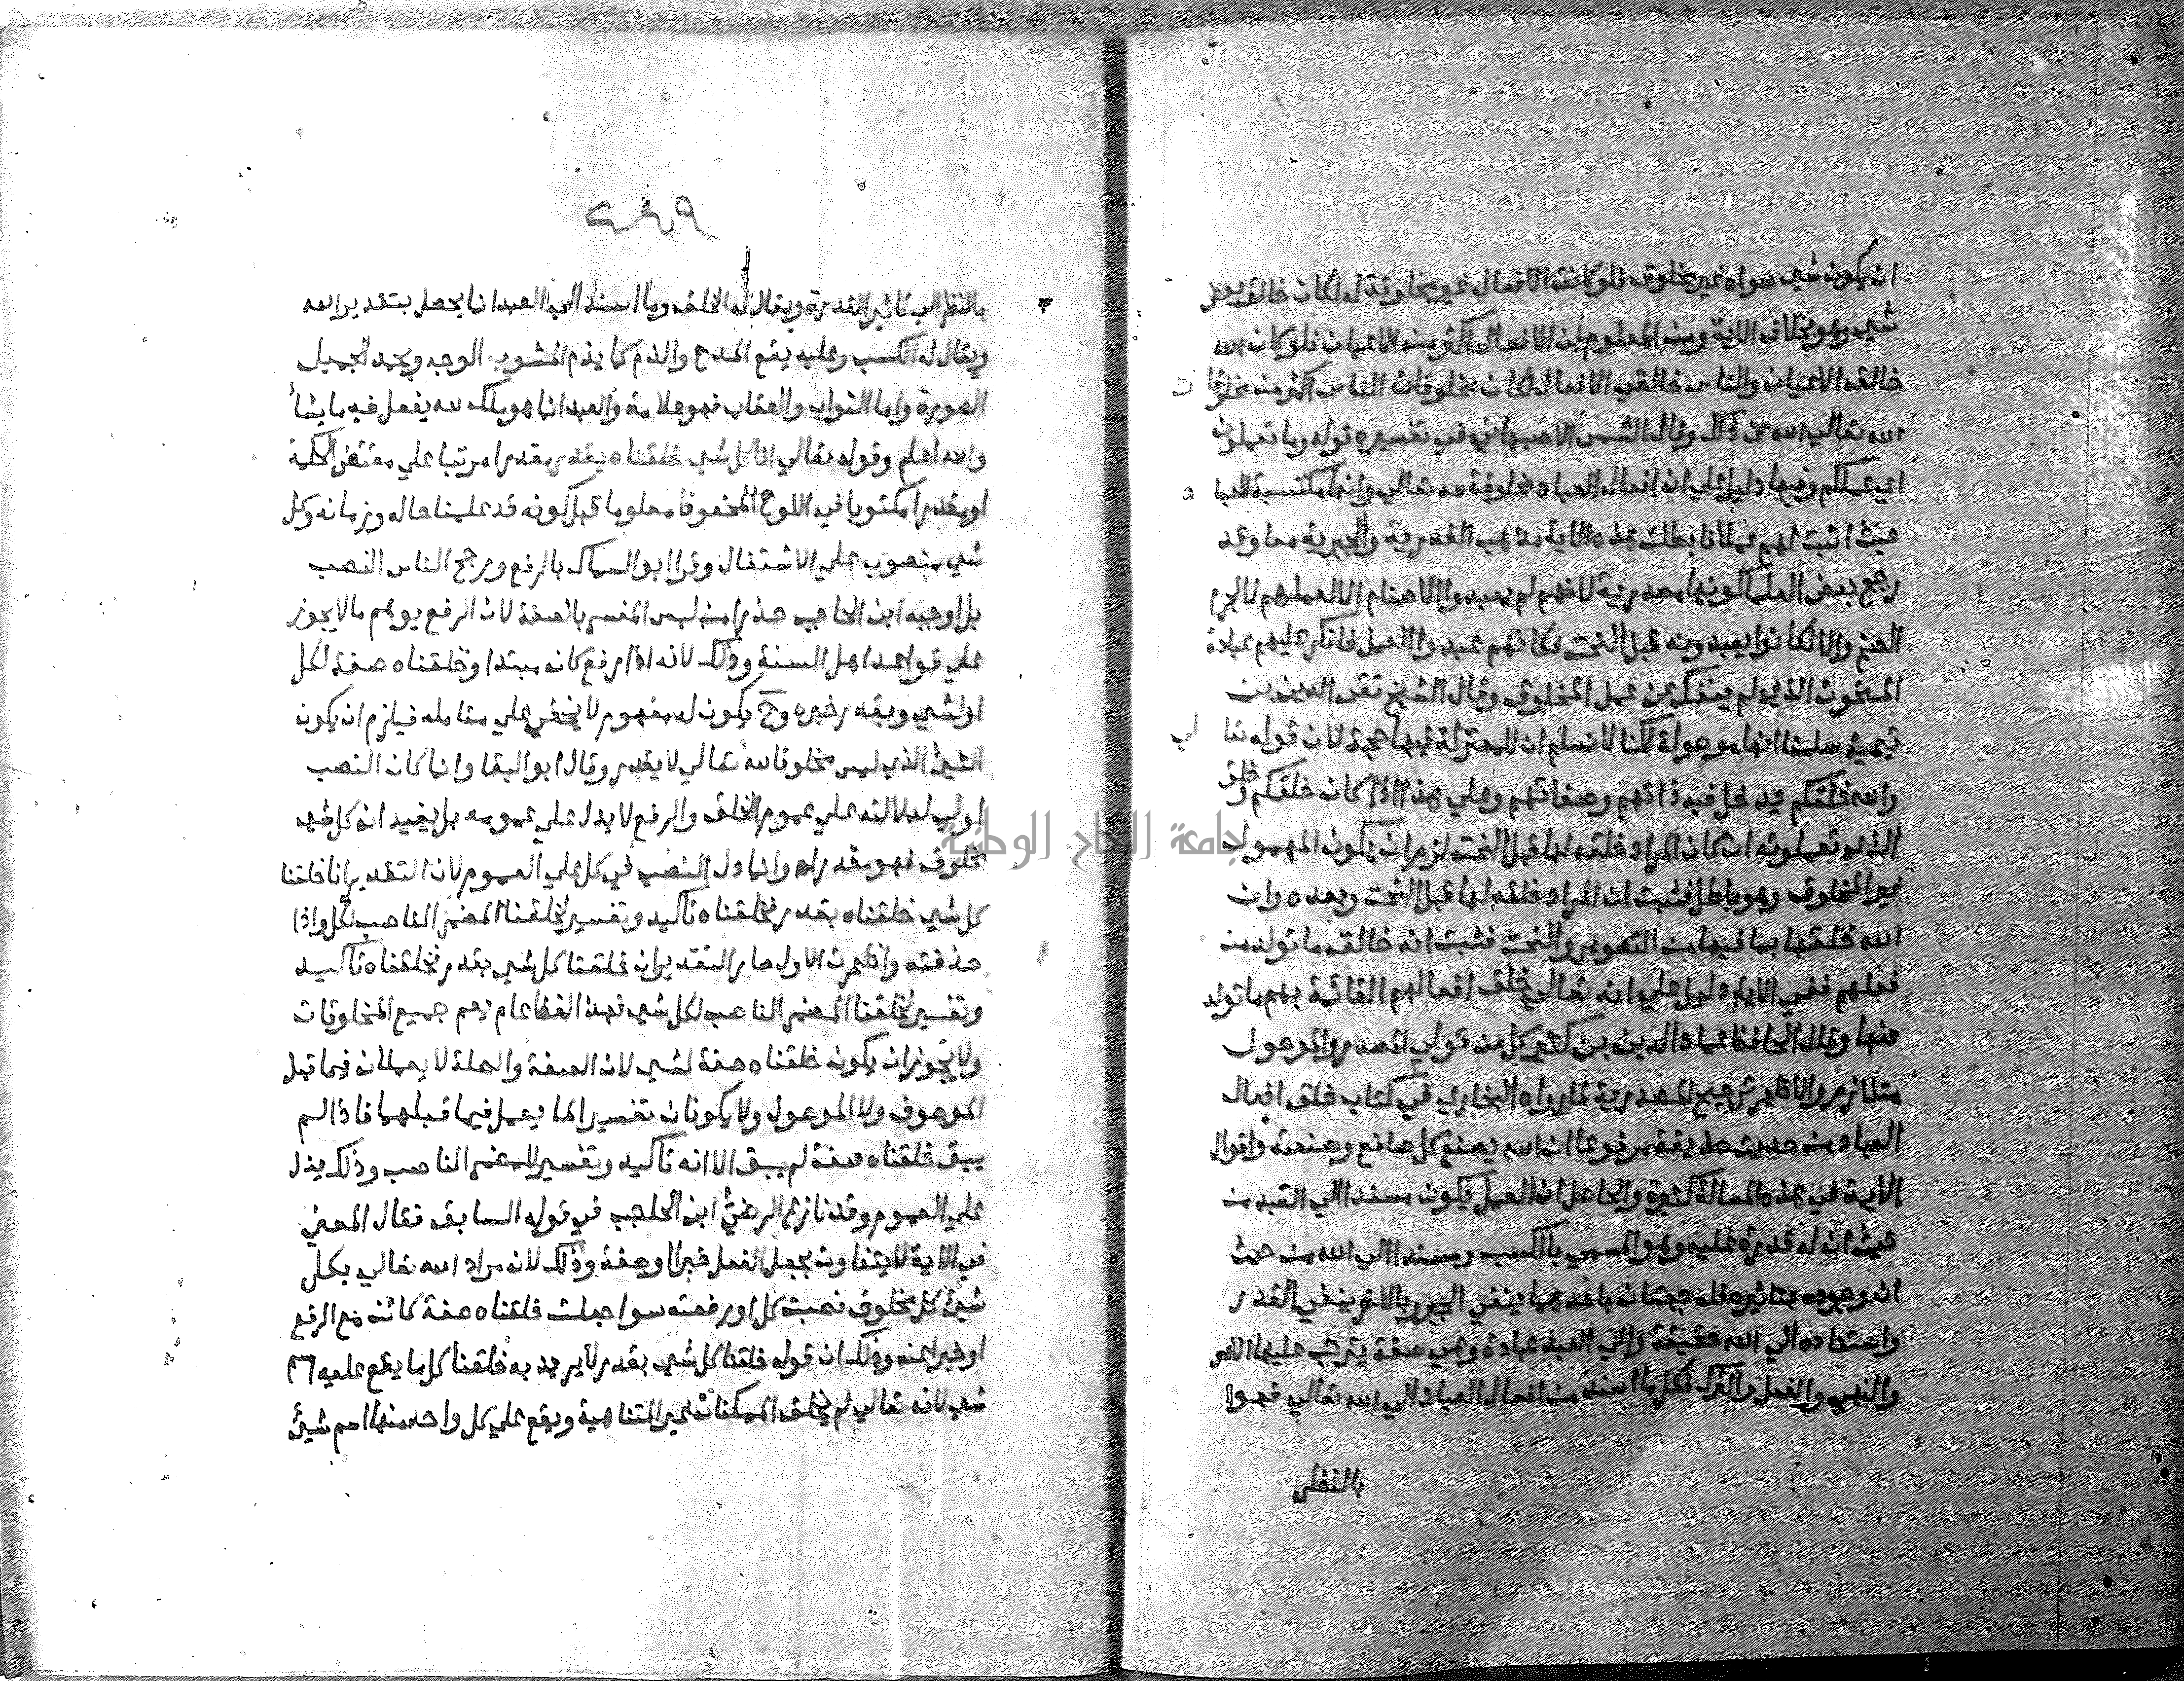 ان يكون شي سواه غير مخلوق فلو كانت الافعال غير مخلوقة له لكان خالق بعض
شي وهو بخلاف الاية ومن المعلوم ان الافعال اكثر من الاعيان فلو كان الله
خالق الاعيان والناس خالقي الافعال لكان مخلوقات الناس اكثر من مخلوقات
الله تعالى الله عن ذلك وقال الشمس الاصبهاني في تفسيره قوله وما تعملون
اي عملكم وفيها دليل علي ان افعال العباد مخلوقة لله تعالي وانها مكتسبة للعباد
حيث اثبت لهم عملا فابطلت هذه الاية مذهب القدرية والجبرية معا وقد
رجح بعض العلما كونها مصدرية لانهم لم يعبدوا الاصنام الا لعملهم لا لجرم
الصنم والا لكانوا يعبدونه قبل النحت فكانهم عبدوا العمل فانكر عليهم عبادة
المنحوت الذي لم ينفك عن عمل المخلوق وقال الشيخ تقي الدين بن
تيمية سلمنا انها موصولة لكنا لا نسلم ان للمعتزلة فيها حجة لان قوله تعالي
والله خلقكم يدخل فيه ذاتهم وصفاتهم وعلي هذا اذا كان خلقكم وخلق
الذي تعملونه ان كان المراد خلقه لها قبل النحت لزم ان يكون المعمول
غير المخلوق وهو باطل فثبت ان المراد خلقه لها قبل النحت وبعده وان
الله خلقها بما فيها من التصوير والنحت فثبت انه خالق ما تولد من
فعلهم ففي الاية دليل علي انه تعالي خلق افعالهم القائمة بهم وما تولد
عنها وقال الحافظ عماد الدين بن كثير كل من قولي المصدر والموصول
متلازم والاظهر ترجيح المصدرية لما رواه البخاري في كتاب خلق افعال
العباد من حديث حذيفة مرفوعا ان الله يصنع كل صانع وصنعته واقوال
الايمة في هذه المسالة كثيرة والحاصل ان العمل يكون مسندا الي العبد من
حيث ان له قدرة عليه وهو المسمي بالكسب ومسندا الي الله من حيث
ان وجوده بتاثيره فله جهتان باحدهما ينفي الجبر وبالاخر ينفي القدر
واستناده الي الله حقيقة والي العبد عبادة وهي صفة يترتب عليها الامر
والنهي والفعل والترك فكل ما اسند من افعال العباد الي الله تعالي فهو
بالنظر
٤٤٩
بالنظر الي تاثير القدرة ويقال له الخلق وما اسند الي العبد انما يحصل بتقدير الله
ويقال له الكسب وعليه يقع المدح والذم كما يذم المشوه الوجه ويحمد الجميل
الصورة واما الثواب والعقاب فهو علامة والعبد انما هو ملك لله يفعل فيه ما يشأ
والله اعلم وقوله تعالي انا كل شي خلقناه بقدر مقدرا مرتبا علي مقتضي الحكمة
او مقدرا مكتوبا في اللوح المحفوظ معلوما قبل كونه قد علمنا حاله وزمانه وكل
شي منصوب علي الاشتغال وقرا ابو السماك بالرفع ورجح الناس النصب
بل اوجبه ابن الحاجب حذرا من لبس المفسر بالصفة لان الرفع يوهم ما لا يجوز
علي قواعد اهل السنة وذلك لانه اذا رفع كان مبتدا وخلقناه صفة لكل
او لشي وبقدر خبره وح يكون له مفهوم لا يخفي علي متامله فيلزم ان يكون
الشيئ الذي ليس مخلوقا لله تعالي لا بقدر وقال ابو البقا وانما كان النصب
اولي لدلالته علي عموم الخلق والرفع لا يدل علي عمومه بل يفيد ان كل شي
مخلوق فهو بقدر اه وانما دل النصب في كل علي العموم لان التقدير انا خلقنا
كل شي خلقناه بقدر فخلقناه تاكيد وتفسير لخلقنا المضمر الناصب لكل واذا
حذفته واظهرت الاول صار التقدير انا خلقنا كل شي بقدر فخلقناه تاكيد
وتفسير لخلقنا المضمر الناصب لكل شي فهذا لفظ عام يعم جميع المخلوقات
ولا يجوز ان يكون خلقناه صفة لشي لان الصفة والصلة لا يعملان فيما قبل
الموصوف ولا الموصول ولا يكونان تفسير الما يعمل فيما قبلهما فاذا لم
يبق خلقناه صفة لم يبق الا انه تاكيد وتفسير للمضمر الناصب وذلك يدل
علي العموم وقد نازع الرضي ابن الحاجب في قوله السابق فقال المعني
في الاية لا يتفاوت بجعل الفعل خبرا او صفة وذلك لان مراد الله تعالي بكل
شيئ كل مخلوق نصبت كل او رفعته سوا جعلت خلقناه صفة كائن مع الرفع
او خبرا عنه وذلك ان قوله خلقنا كل شي بقدر لا يريد به خلقنا كل ما يقع عليه
شي لانه تعالي لم يخلق الممكنات غير المتناهية ويقع علي كل واحد منها اسم شيئ
جامعة النجاح الوطنية